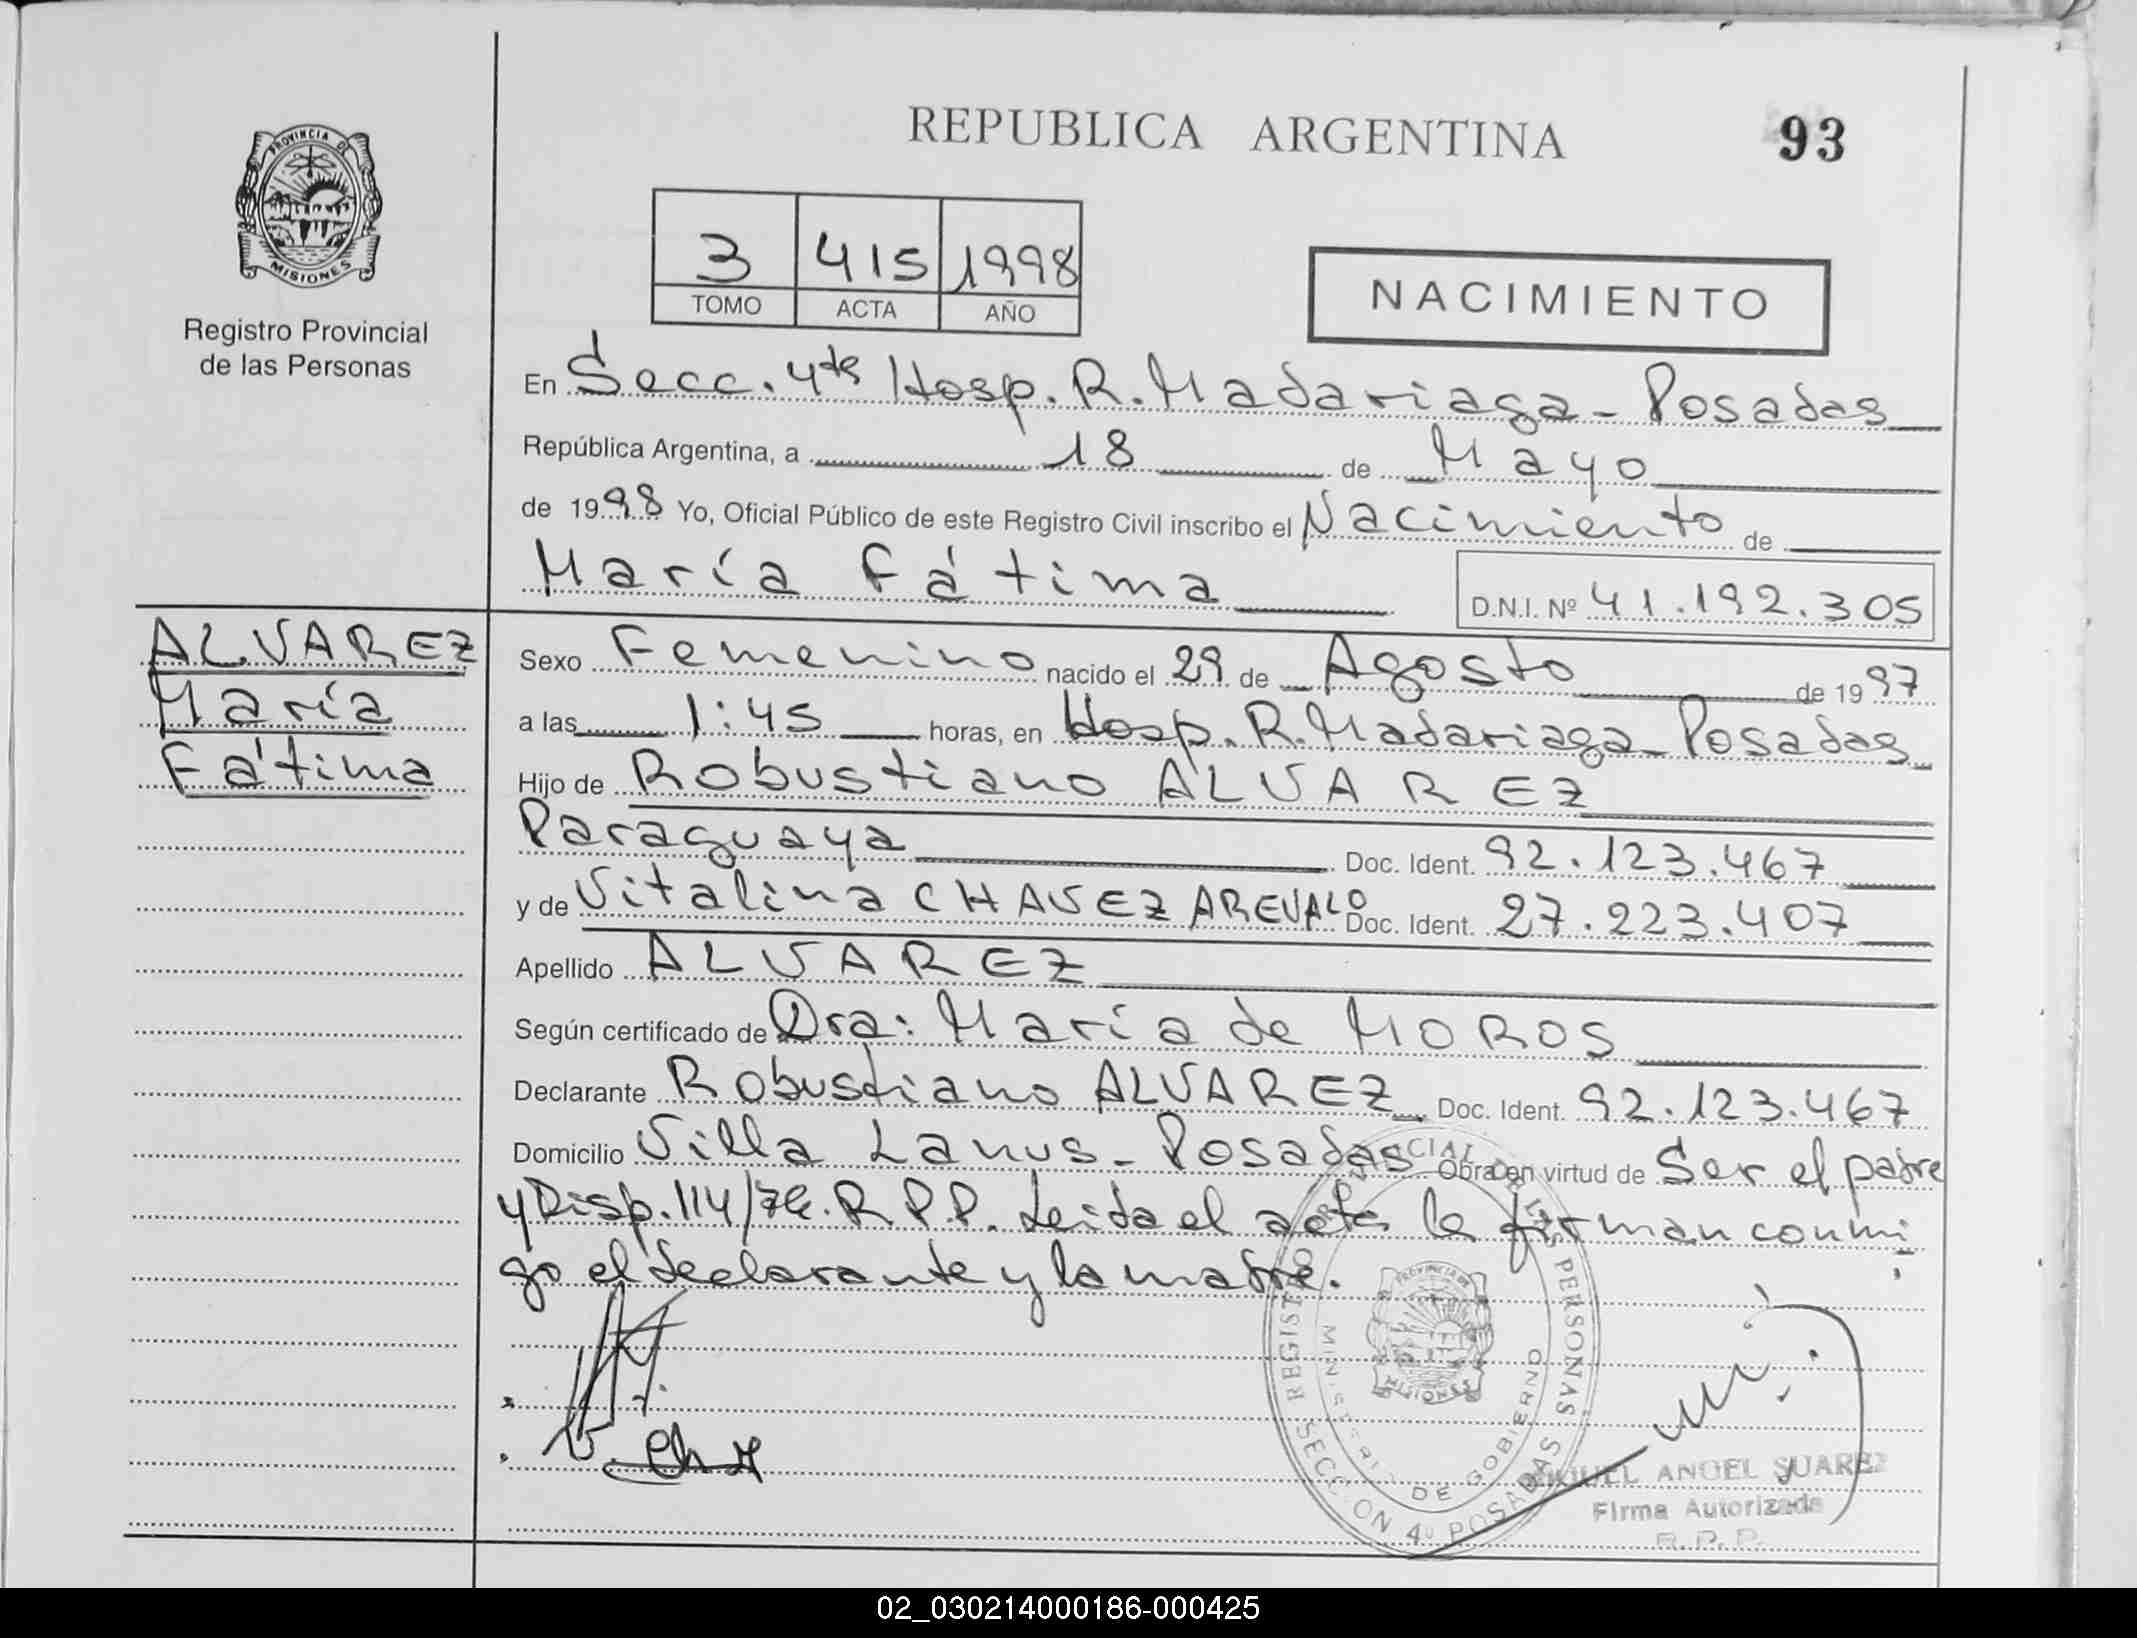 REPUBLICA ARGENTINA
93
PROVINCIA DE
MISIONES
Registro Provincial
de las Personas
3 415 1998
TOMO ACTA AÑO
NACIMIENTO
En Secc. 4ta Hosp. R. Madariaga - Posadas
República Argentina, a 18 de Mayo
de 1998 Yo, Oficial Público de este Registro Civil inscribo el Nacimiento de
María Fátima
D.N.I. Nº 41.192.305
ALVAREZ
María
Fátima
Sexo Femenino nacido el 29 de Agosto de 1997
a las 1:45 horas, en Hosp. R. Madariaga - Posadas
Hijo de Robustiano ALVAREZ
Paraguaya Doc. Ident. 92.123.467
y de Vitalina CHAVEZ AREVALO Doc. Ident. 27.223.407
Apellido ALVAREZ
Según certificado de Dra: María de MOROS
Declarante Robustiano ALVAREZ Doc. Ident. 92.123.467
Domicilio Villa Lanus - Posadas Obra en virtud de Ser el padre
y Disp. 114/ R.P.P. Leida el acta la firman conmi
go el declarante y la madre.
REGISTRO PROVINCIAL DE LAS PERSONAS
MINISTERIO DE GOBIERNO
PROVINCIA DE
MISIONES
SECCION 4º POSADAS
MIGUEL ANGEL SUAREZ
Firma Autorizada
R.P.P.
02_030214000186-000425